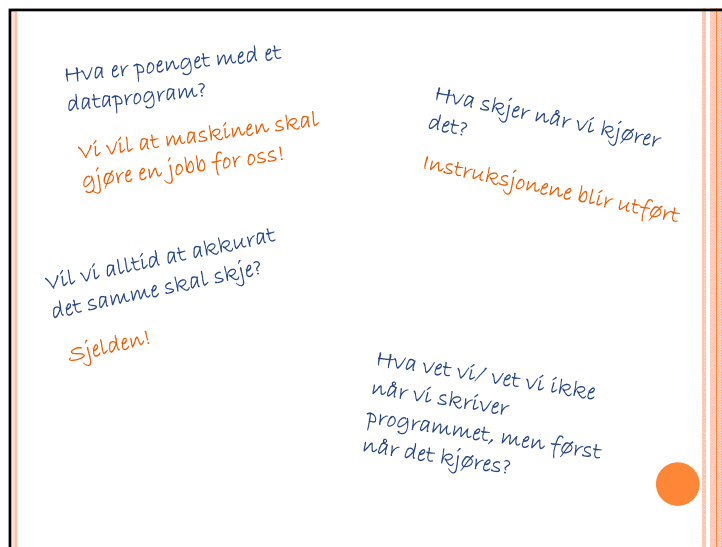 Hva er poenget med et
dataprogram?
Vi vil at maskinen skal
gjøre en jobb for oss!
Hva skjer når vi kjører
det?
Instruksjonene blir utført
Vil vi alltid at akkurat
det samme skal skje?
Sjelden!
Hva vet vi/ vet vi ikke
når vi skriver
programmet, men først
når det kjøres?